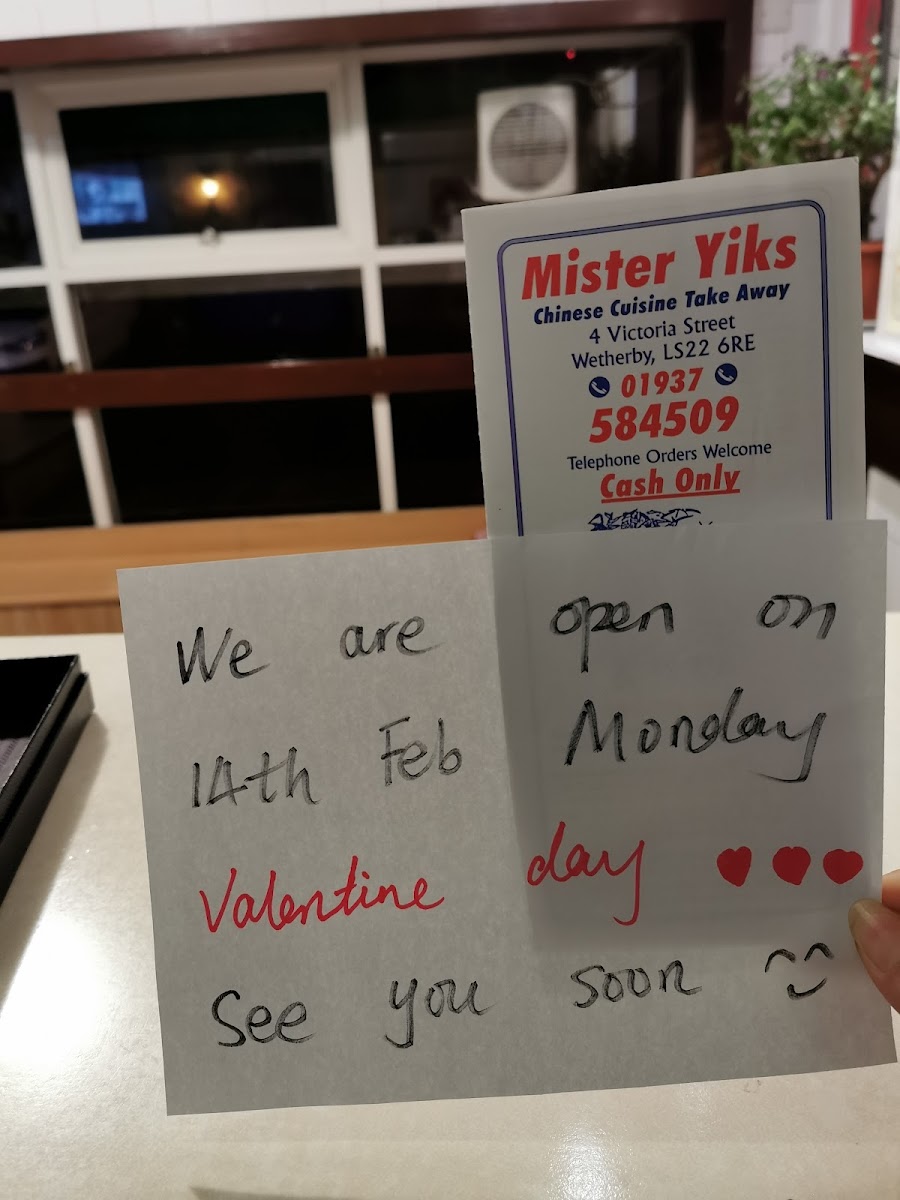 Mister Yiks
Chinese Cuisine Take Away
4 Victoria Street
Wetherby, LS22 6RE
01937
584509
Telephone Orders Welcome
Cash Only
We are open on
14th Feb Monday
Valentine day
See you soon